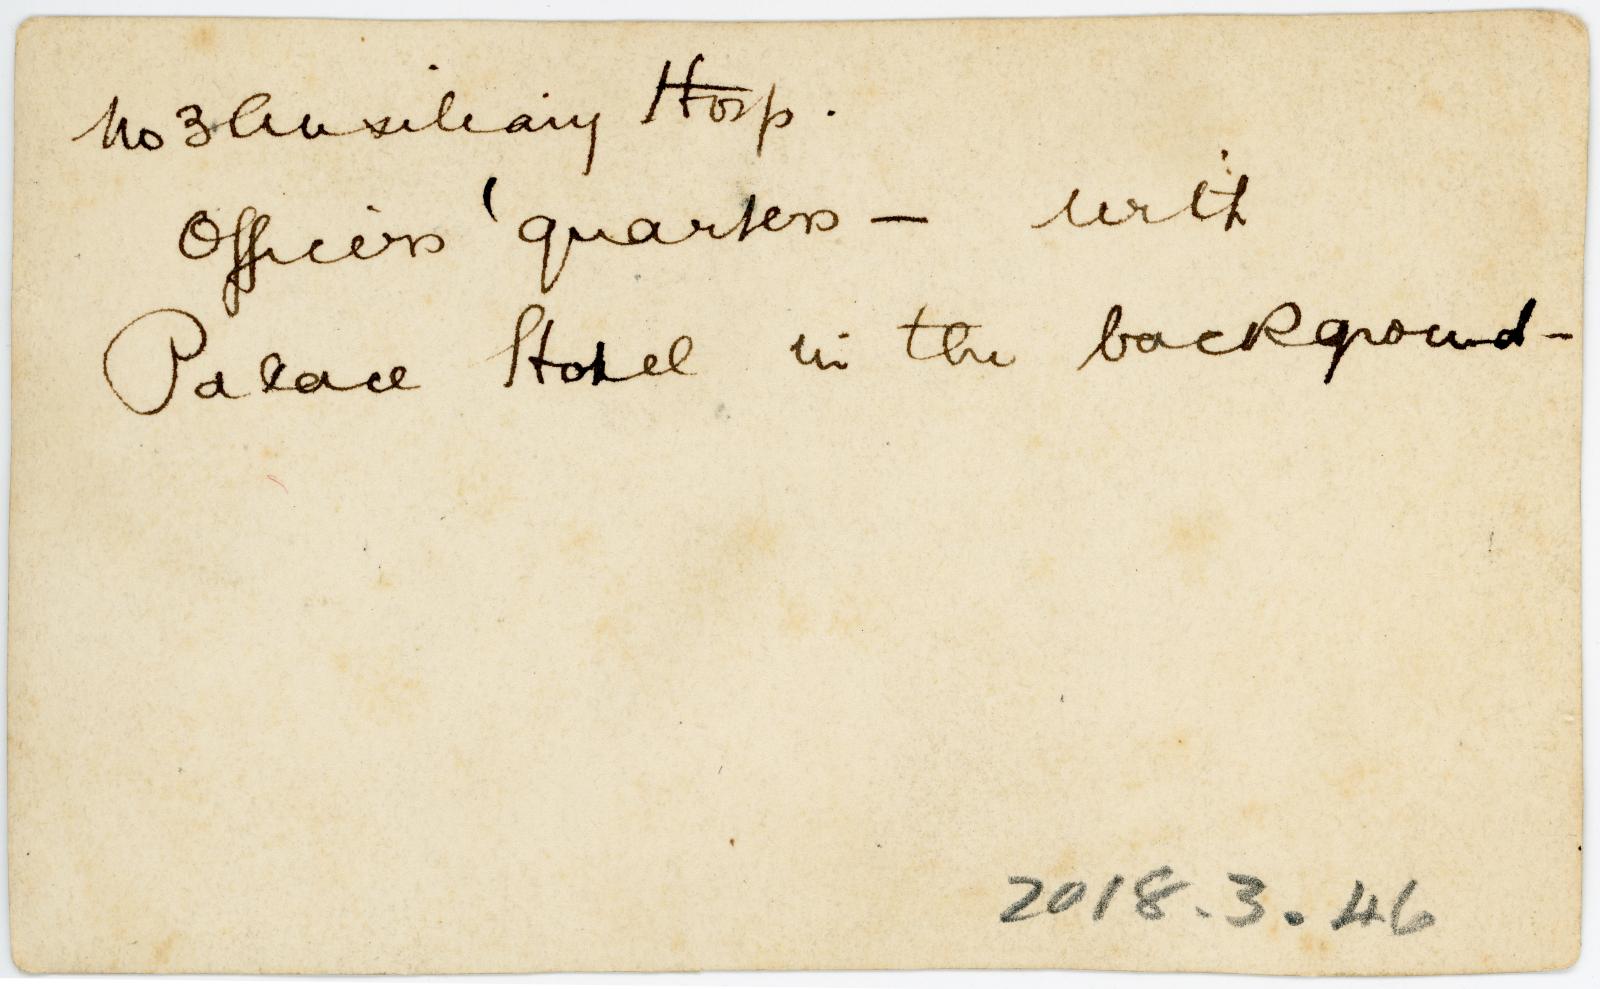 No 3 Auxiliary Hosp.
Officers' quarters — with
Palace Hotel in the background -
2018.3.46